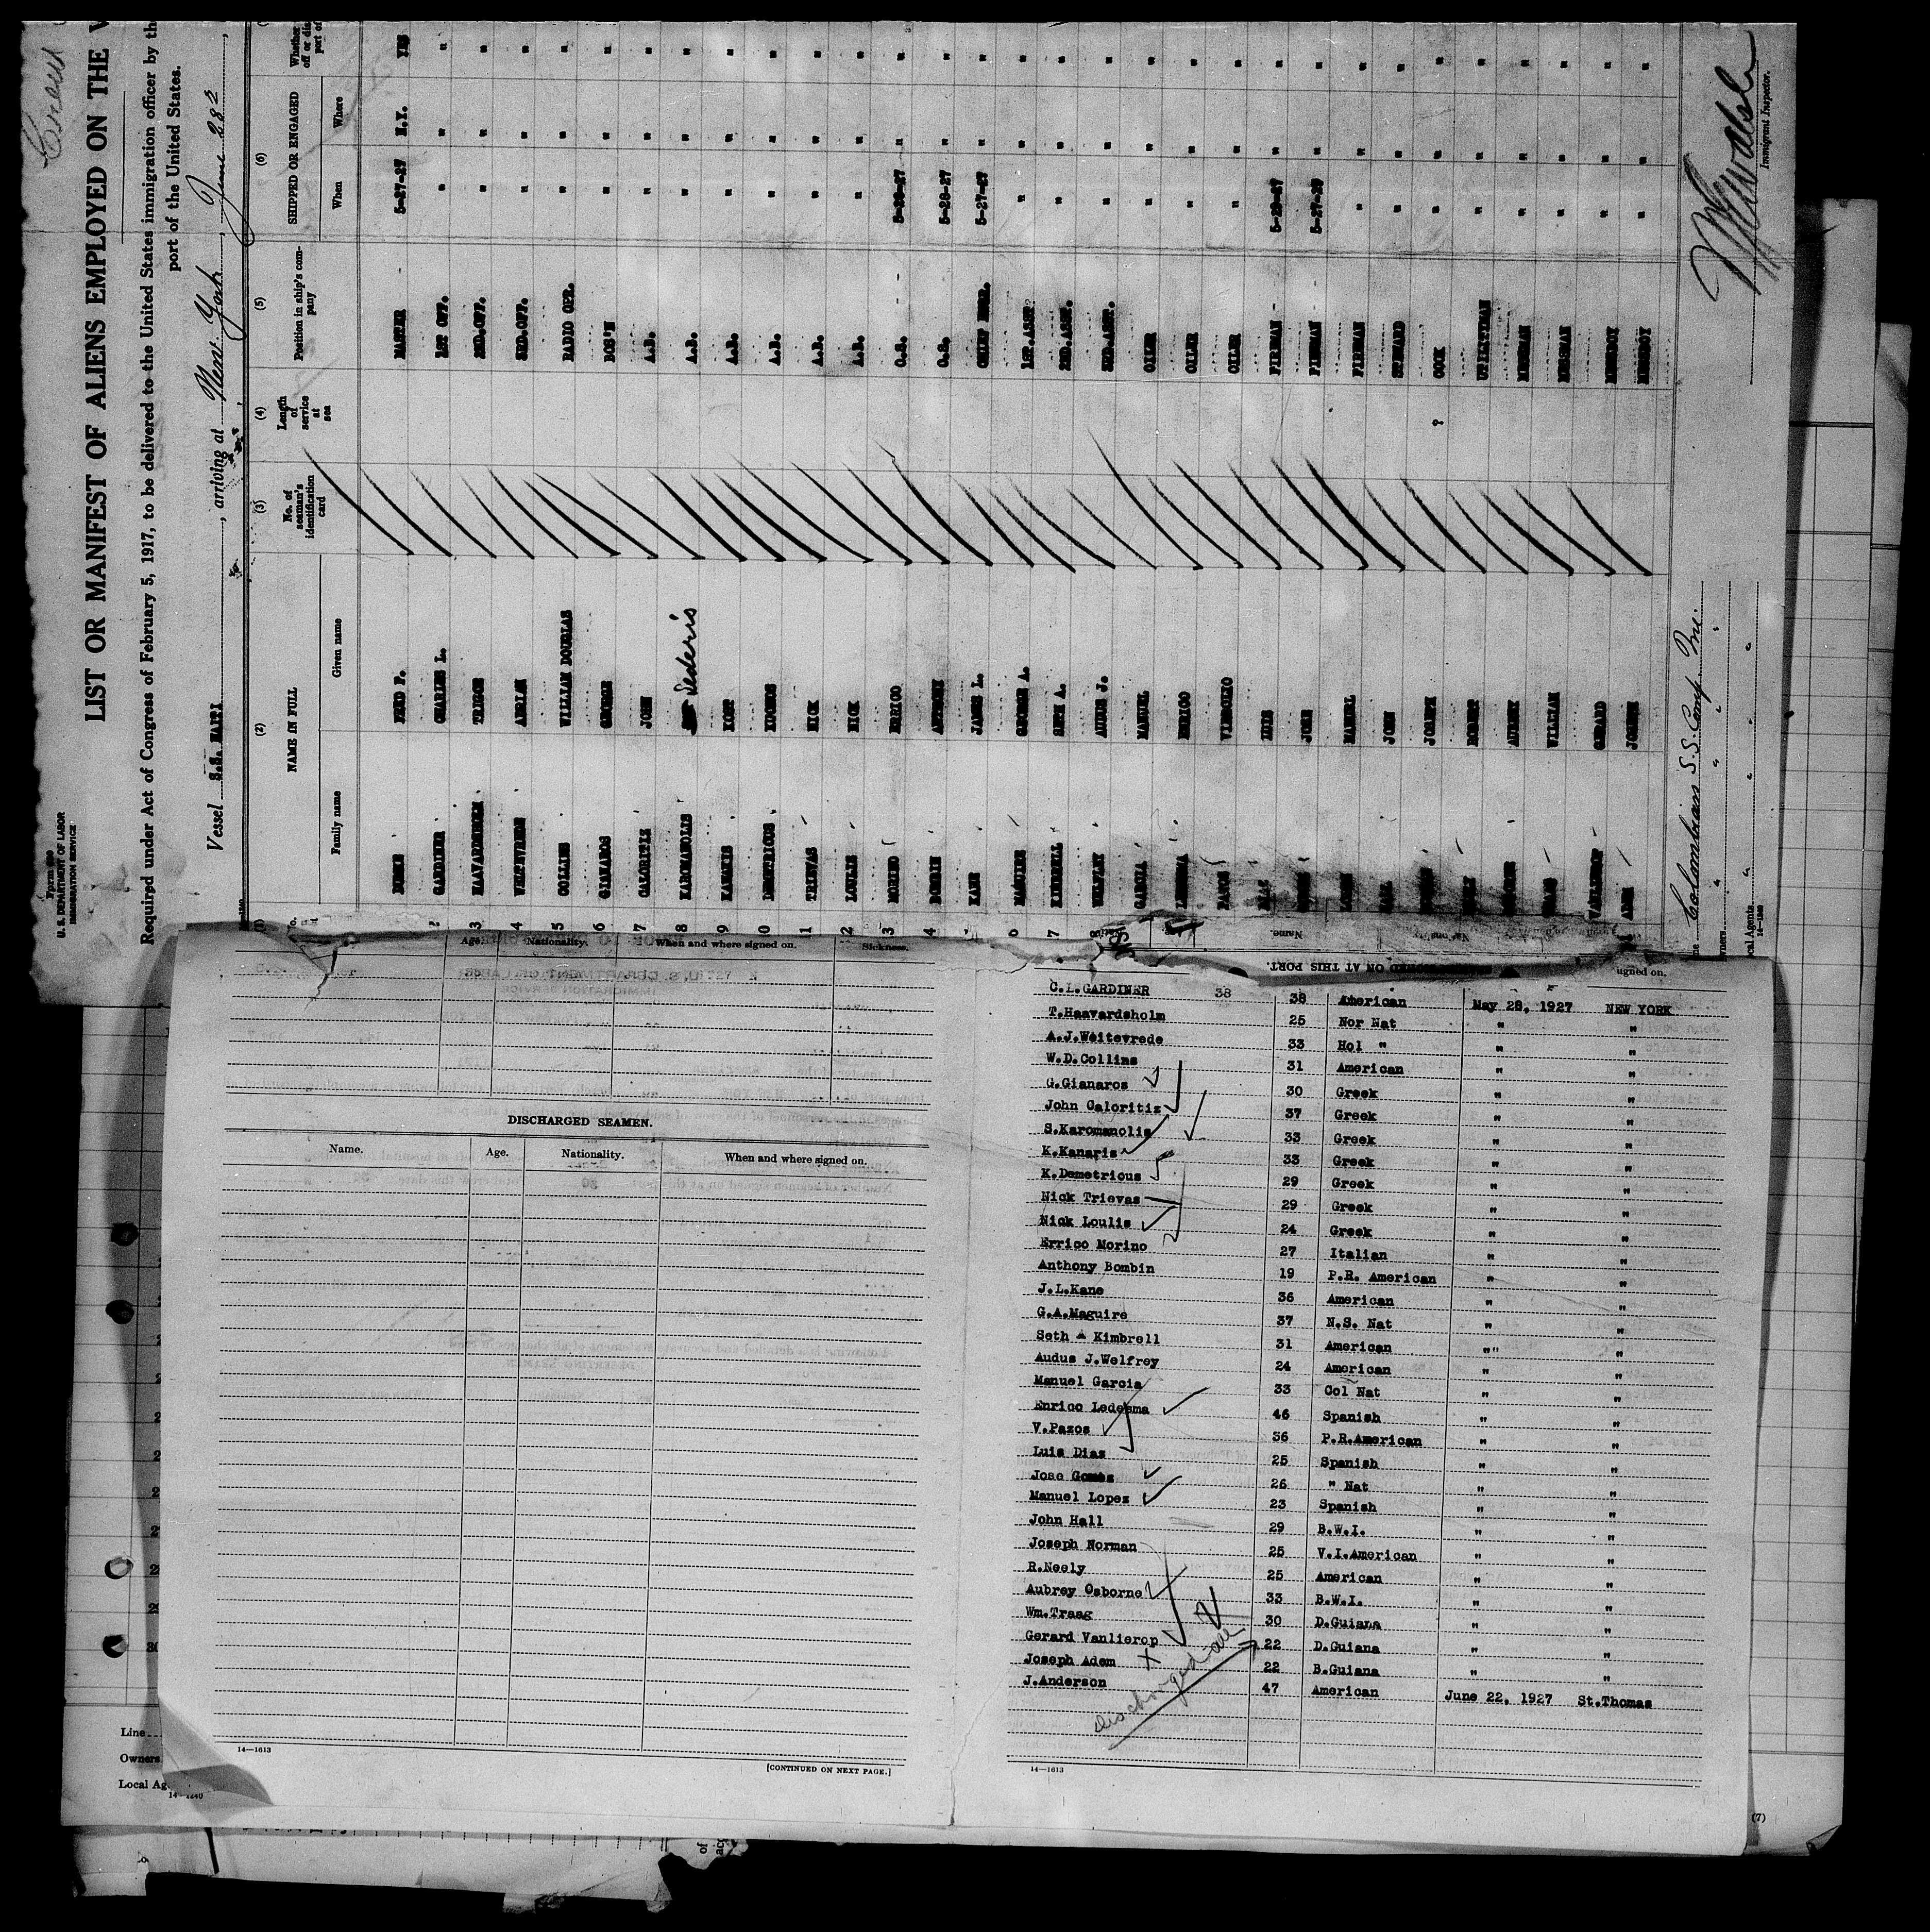 Crew
Form 680
U. S. DEPARTMENT OF LABOR
IMMIGRATION SERVICE
LIST OR MANIFEST OF ALIENS EMPLOYED ON THE V
Required under Act of Congress of February 5, 1917, to be delivered to the United States immigration officer by th
port of the United States.
Vessel S.S. HAITI, arriving at New York, June 28
(2) (3) (4) (5) (6)
NAME IN FULL No. of seaman's identification card Length of service at sea Position in ship's company SHIPPED OR ENGAGED
Family name Given name When Where
FRED F. MASTER 5-27-27 N.Y. YES
2 GARDINER CHARLES L. 1ST OFF. " " "
3 HAAVARDSHOLM TRIGGE 2ND.OFF. " " "
4 WEITEVREDE ADRIAN 3RD.OFF. " " "
5 COLLINS WILLIAM DOUGLAS RADIO OPR. " " "
6 GIANAROS GEORGE BOS'N " " "
7 GALORITIZ JOHN A.B. " " "
8 KAROMANOLIS Sederis A.B. " " "
9 KANARIS KOST A.B. " " "
0 DEMETRIOUS A.B. " " "
1 TRIEVAS NICK A.B. " " "
2 LOULIS NICK A.B. " " "
3 MORINO ERRICO O.S. 5-28-27 " "
4 BOMBIN ANTHONY O.S. 5-28-27 " "
KANE JAMES L. CHIEF ENGR. 5-27-27 " "
6 MAGUIRE GEORGE A. 1ST.ASST. " " "
7 KIMBRELL SETH A. 2ND.ASST. " " "
WELVREY AUDUS J. 3RD.ASST. " " "
GARCIA MANUEL OILER " " "
LEDESMA ENRICO OILER " " "
PAZOS VIRGOLIO OILER " " "
DIAZ LUIS FIREMAN 5-28-27 " "
JOSE FIREMAN 5-27-27 " "
LOPEZ MANUEL FIREMAN " " "
HALL JOHN STEWARD " " "
JOSEPH COOK " " "
ROBERT UTILITYMAN " " "
AUBREY MESSMAN " " "
WILLIAM MESSMAN " " "
VANLIEROP GERARD MESSBOY " " "
ADEM JOSEPH MESSBOY " " "
Colombian S.S. Comp Inc.
Immigrant Inspector.
Age. Nationality. When and where signed on. Sickness.
DISCHARGED SEAMEN.
Name. Age. Nationality. When and where signed on.
14—1613
[CONTINUED ON NEXT PAGE.]
C.L.GARDINER 38 38 American May 28, 1927 NEW YORK
T.Haavardsholm 25 Nor Nat " "
A.J.Weitevrede 33 Hol " " "
W.D.Collins 31 American " "
G.Gianaros 30 Greek " "
John Galoritiz 37 Greek " "
S.Karomanolis 33 Greek " "
K.Kanaris 33 Greek " "
K.Demetrious 29 Greek " "
Nick Trievas 29 Greek " "
Nick Loulis 24 Greek " "
Errico Morino 27 Italian " "
Anthony Bombin 19 P.R. American " "
J.L.Kane 36 American " "
G.A.Maguire 37 N.S. Nat " "
Seth A Kimbrell 31 American " "
Audus J.Welfrey 24 American " "
Manuel Garcia 33 Col Nat " "
Enrico Ledesma 46 Spanish " "
V.Pazos 36 P.R.American " "
Luis Diaz 25 Spanish " "
Jose Gomez 26 " Nat " "
Manuel Lopez 23 Spanish " "
John Hall 29 B.W.I. " "
Joseph Norman 25 V.I.American " "
R.Neely 25 American " "
Aubrey Osborne 33 B.W.I. " "
Wm.Traag 30 D.Guiana " "
Gerard Vanlierop 22 D.Guiana " "
Joseph Adem 22 B.Guiana " "
J.Anderson 47 American June 22, 1927 St.Thomas
Discharged all
14—1613
(7)
Line
Owners
Local Ag